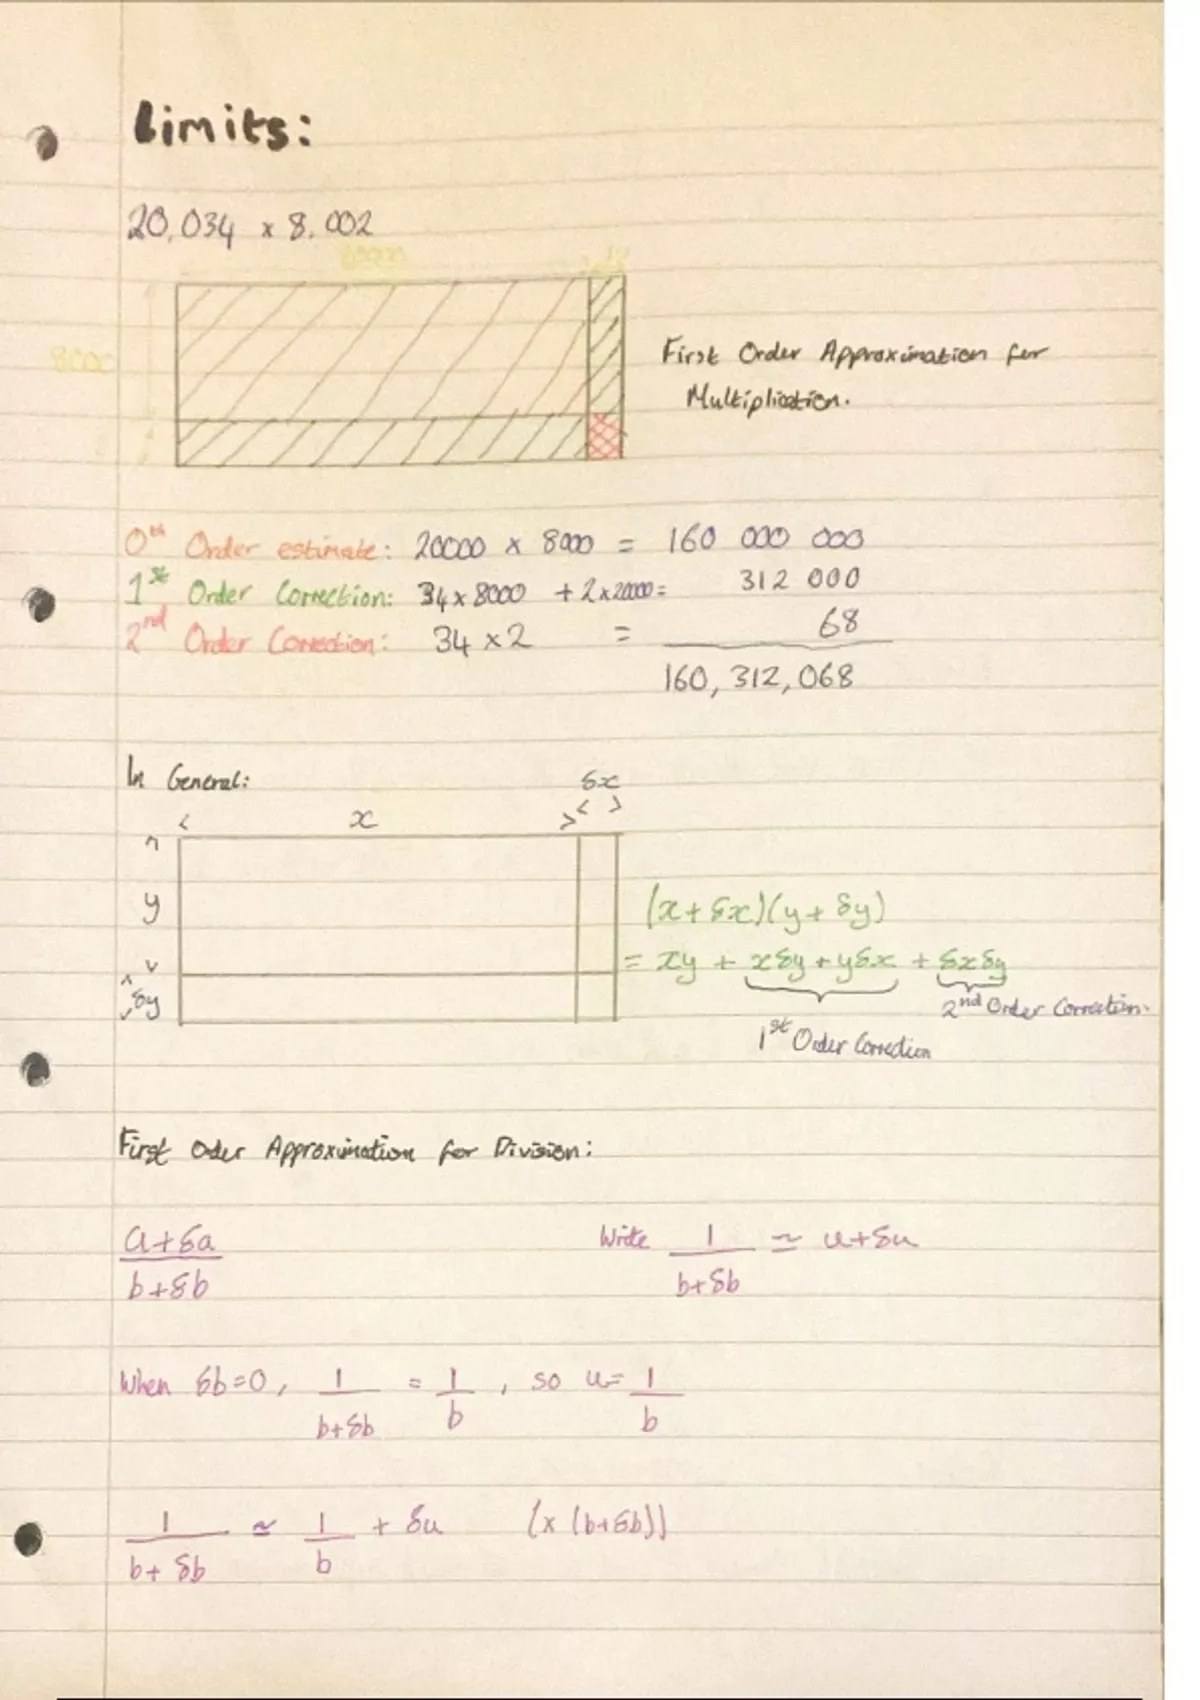 Limits:
20,034 x 8,002
8000
First Order Approximation for
Multiplication.
0th Order estimate: 20000 x 8000 = 160 000 000
1st Order Correction: 34 x 8000 + 2 x 20000 = 312 000
2nd Order Correction: 34 x 2 = 68
160, 312, 068
In General:
δx
x
y
(x + δx)(y + δy)
= xy + xδy + yδx + δxδy
δy
2nd Order Correction.
1st Order Correction
First Order Approximation for Division:
a + δa / b + δb Write 1 / b + δb ≃ u + δu
When δb = 0, 1 / b + δb = 1 / b, so u = 1 / b
1 / b + δb ≃ 1 / b + δu (x (b + δb))